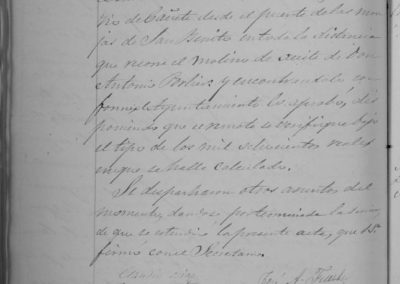 de Cañete desde el puente de las mon
jas de San Benito en toda la distancia
que recorre el molino de aceite de Don
Antonio y encontrandola con
forme el Ayuntamiento la aprobó, dis
poniendo que el remate se verifique bajo
el tipo de los mil seiscientos reales
en que se halla calculado.
Se despacharon otros asuntos del
momento, dandose por terminada la sesion,
de que se estendió la presente acta, que S.
firmó con el Secretario.
José A.